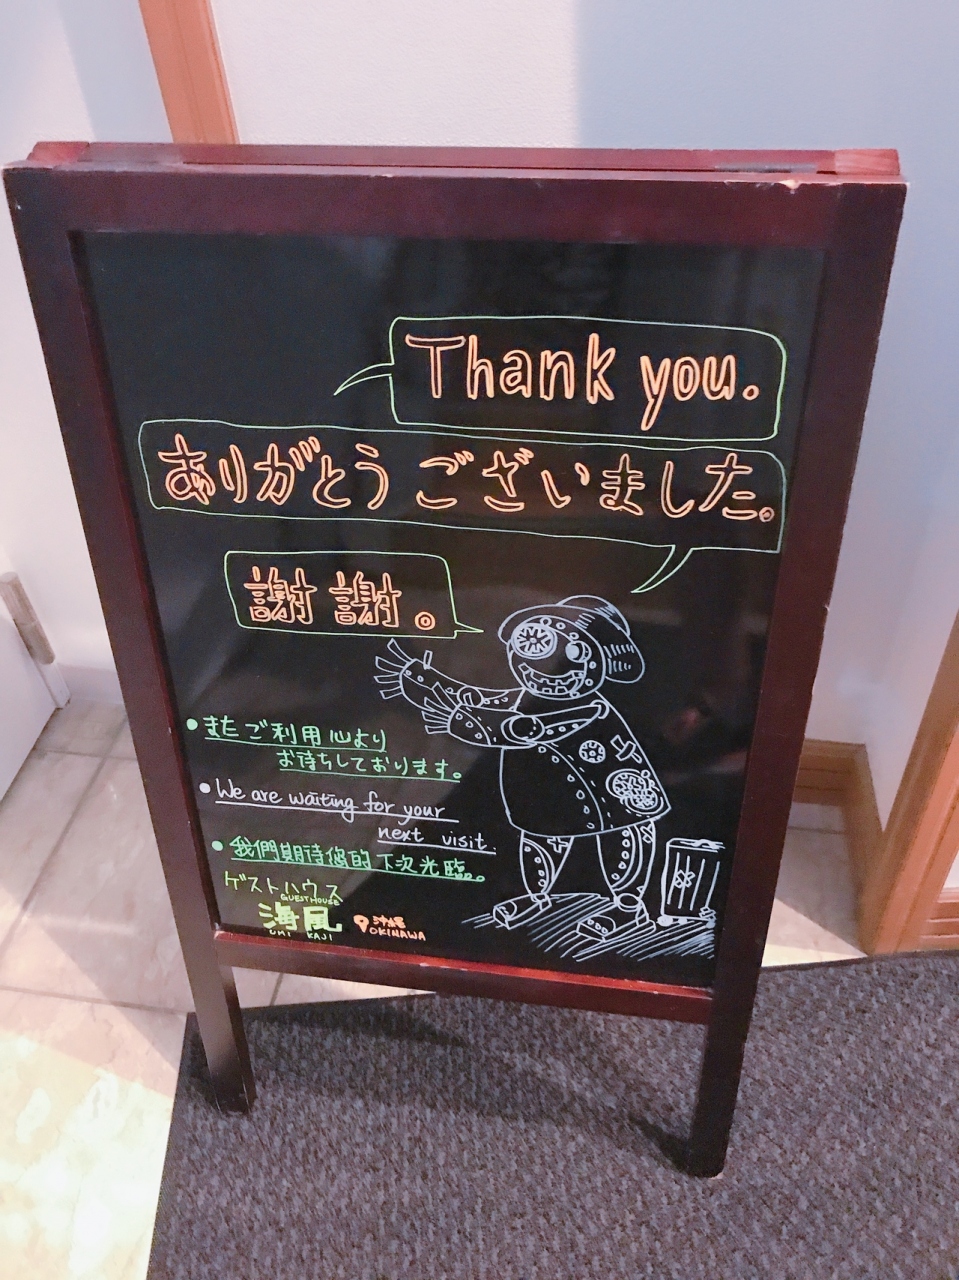 Thank you.
ありがとうございました。
謝謝。
●またご利用心より
お待ちしております。
●We are waiting for your
next visit.
●我們期待您的下次光臨。
ゲストハウス
GUESTHOUSE
海風
UMI KAJI
沖縄
OKINAWA